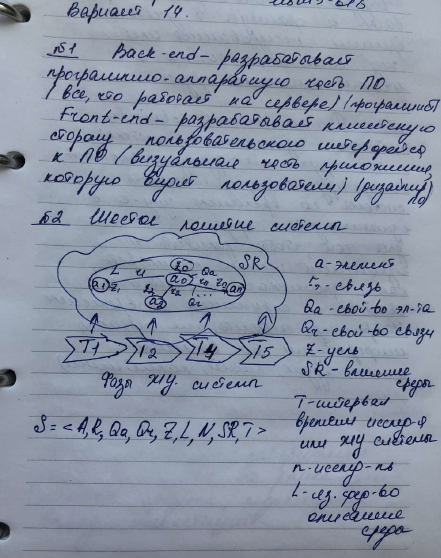 Вариант 14.
№1 Back-end - разрабатывает
программно-аппаратную часть ПО
(все, что работает на сервере) (программист)
Front-end - разрабатывает клиентскую
сторону пользовательского интерфейса
к ПО (визуальная часть приложения,
которую видят пользователи) (дизайнер)
№2 Шестое понятие системы
SR
L
Z1
a1
a0
Qa
an
a2
Qr
...
T1 T2 T4 T5
Фазы ЖЦ системы
S = < A, R, Qa, Qr, Z, L, N, SR, T >
a - элемент
r - связь
Qa - свой-во эл-та
Qr - свой-во связи
Z - цель
SR - влияние
среды
T - интервал
времени исслед-я
или ЖЦ системы
n - исслед-ль
L - яз.
описание
среды